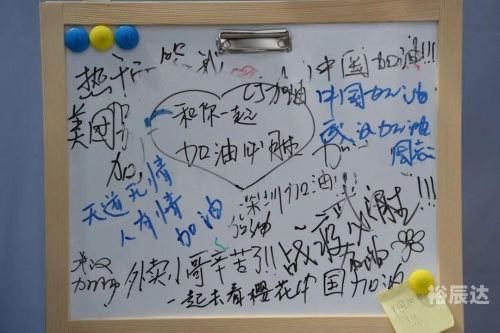 中国加油!!!
加油
美团
和你一起
加油必胜
中国加油
武汉加油
天道无情
人有情
加油
深圳加油!
加油
外卖小哥辛苦了!!!
战役必胜!!!
加油
武汉
加油
一起去看樱花
中国加油
裕辰达